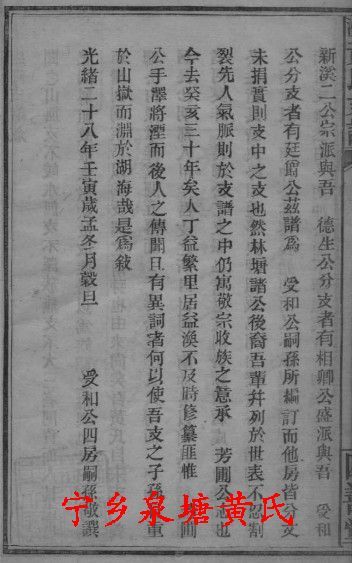 新溪二公宗派與吾 德生公分支者有相卿公盛派與吾 受和
公分支者有廷爵公茲譜爲 受和公嗣孫所編訂而他房皆分支
未捐貲則支中之支也然林塘諸公後裔吾輩并列於世表不忍割
裂先人氣脈則於支譜之中仍寓敬宗收族之意承 芳圃公志也
今去癸亥三十年矣人丁益繁里居益渙不及時修纂匪惟 圃
公手澤將湮而後人之傳聞且有異詞者何以使吾支之子孫重
於山嶽而淵於湖海哉是爲敘
光緒二十八年壬寅歲孟冬月穀旦 受和公四房嗣孫敬譔
宁乡泉塘黄氏